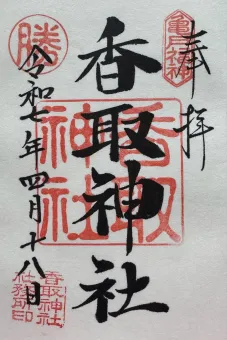 奉拝
亀戸
香取神社
香取
神社
勝
令和七年四月十八日
香取神社
社務所印